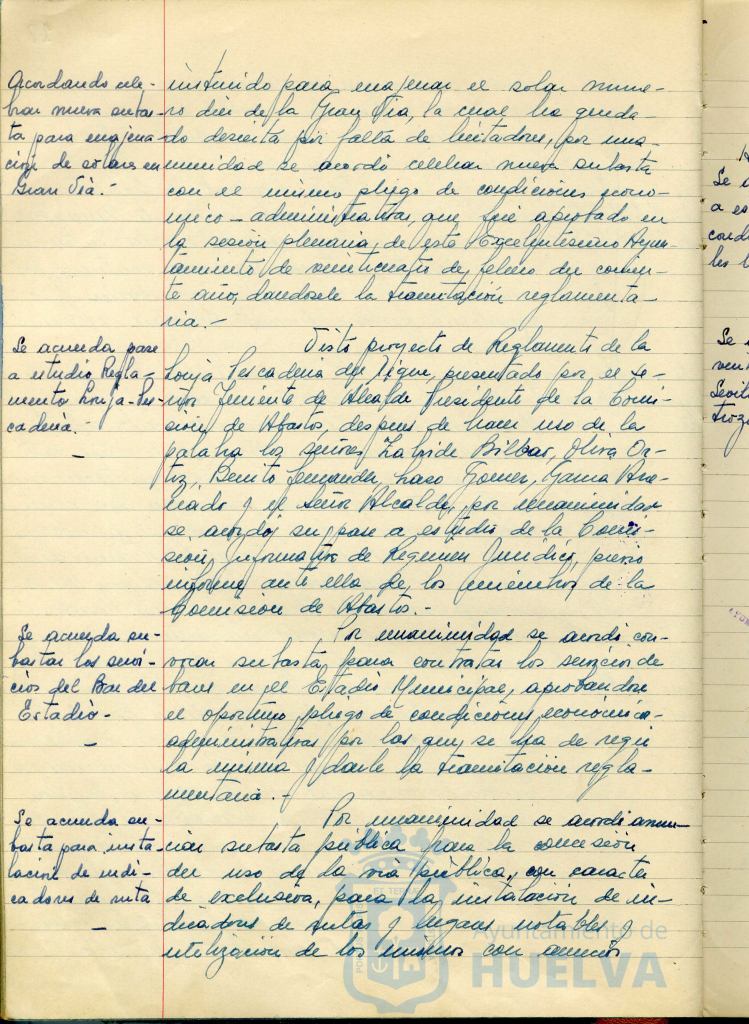 Acordando cele-
brar nueva subas-
ta para enajena-
ción de solares en
Gran Vía.-
instruido para enajenar el solar núme-
ro diez de la Gran Vía, la cual ha queda-
do desierta por falta de licitadores, por una-
nimidad se acordó celebrar nueva subasta
con el mismo pliego de condiciones econo-
mico-administrativas, que fué aprobado en
la sesión plenaria de este Excelentísimo Ayun-
tamiento de veinticuatro de febrero del corrien-
te año, dandosele la tramitación reglamenta-
ria.-
Se acuerda pase
a estudio Regla-
mento Lonja-Pes-
cadería.-
-
Visto proyecto de Reglamento de la
Lonja Pescadería del Dique, presentado por el se-
ñor Teniente de Alcalde Presidente de la Comi-
sión de Abastos, despues de hacer uso de la
palabra los señores Bilbao, Oliva Or-
tiz, Benito Lazo Gomez, Garcia
y el señor Alcalde, por unanimidad
se acordó su pase a estudio de la Comi-
sión Informativa de Regimen Juridico, previo
informe ante ella de los miembros de la
Comisión de Abastos.-
Se acuerda su-
bastar los servi-
cios del Bar del
Estadio-
-
Por unanimidad se acordó con-
vocar subasta para contratar los servicios de
bares en el Estadio Municipal, aprobandose
el oportuno pliego de condiciones económico-
administrativas por las que se ha de regir
la misma y darle la tramitación regla-
mentaria.-
Se acuerda su-
basta para insta-
lación de indi-
cadores de ruta
-
Por unanimidad se acordó anun-
ciar subasta pública para la concesión
del uso de la vía pública, con caracter
de exclusiva, para la instalación de in-
dicadores de rutas y lugares notables y
utilización de los mismos con anuncios
Ayuntamiento de
HUELVA
Se a
a es
cond
les
Se
ven
Sevil
troz